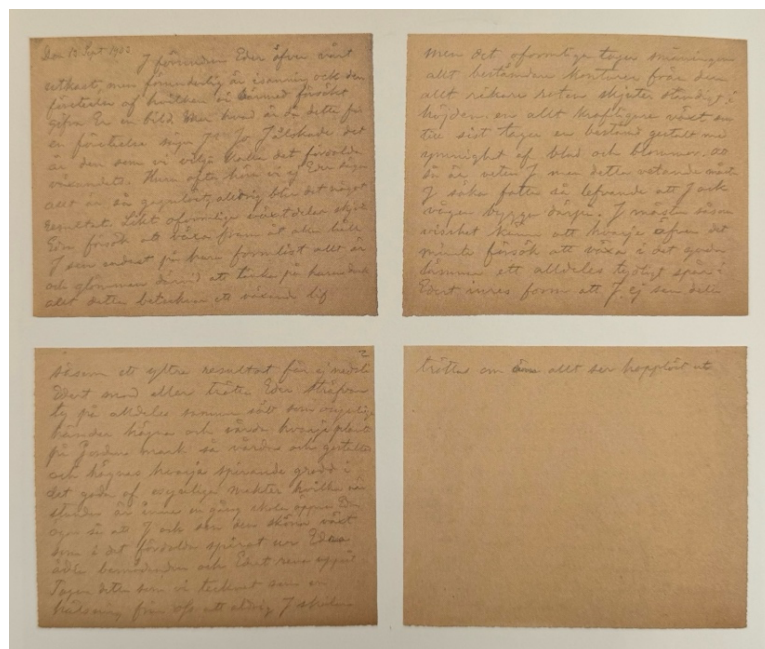 Den 15 Sept 1903
J förundren Eder öfver vårt
utkast, men förunderlig är isanning ock den
företeelse af hvilken vi härmed försökt
gifva Er en bild. Men hvad är då detta för
en företeelse sägen J. Jo J älskade det
är den som vi vilja kalla det fördolda
växandets. Huru ofta höra vi ej Eder säga
allt är så gagnlöst, aldrig blir det något
resultat. Likt oformliga växtdelar skjuta
Edra försök att växa fram åt alla håll
J sen endast på huru formlöst allt är
och glömmen därvid att tänka på huru dock
allt detta betecknar ett växande lif
men det oformliga tager småningom
allt bestämdare konturer från den
allt rikare roten skjuter ständigt i
höjden en allt kraftigare växt som
till sist tager en bestämd gestalt med
ymnighet af blad och blommor. Att
så är, veten J men detta vetande måste
J söka fatta så lefvande att J ock
vågen bygga därpå. J måsten såsom
visshet känna att hvarje äfven det
minsta försök att växa i det goda
lämnar ett alldeles tydligt spår i
Edert inres form att J ej sen detta
2
såsom ett yttre resultat får ej nedslå
Edert mod eller trötta Eder sträfvan
ty på alldeles samma sätt som osynliga
händer hägna och vårda hvarje planta
på Jordens mark så vårdas och gestaltas
och hägnas hvarje spirande grodd i
det goda af osynliga makter hvilka när
stunden är inne en gång skola öppna Edra
ögon så att J ock sen den sköna växt
som i det fördolda spirat ur Edra
ädla bemödanden och Edert rena uppsåt
Tagen detta som vi tecknat som en
hälsning från oss att aldrig J skolen
tröttas om än allt ser hopplöst ut